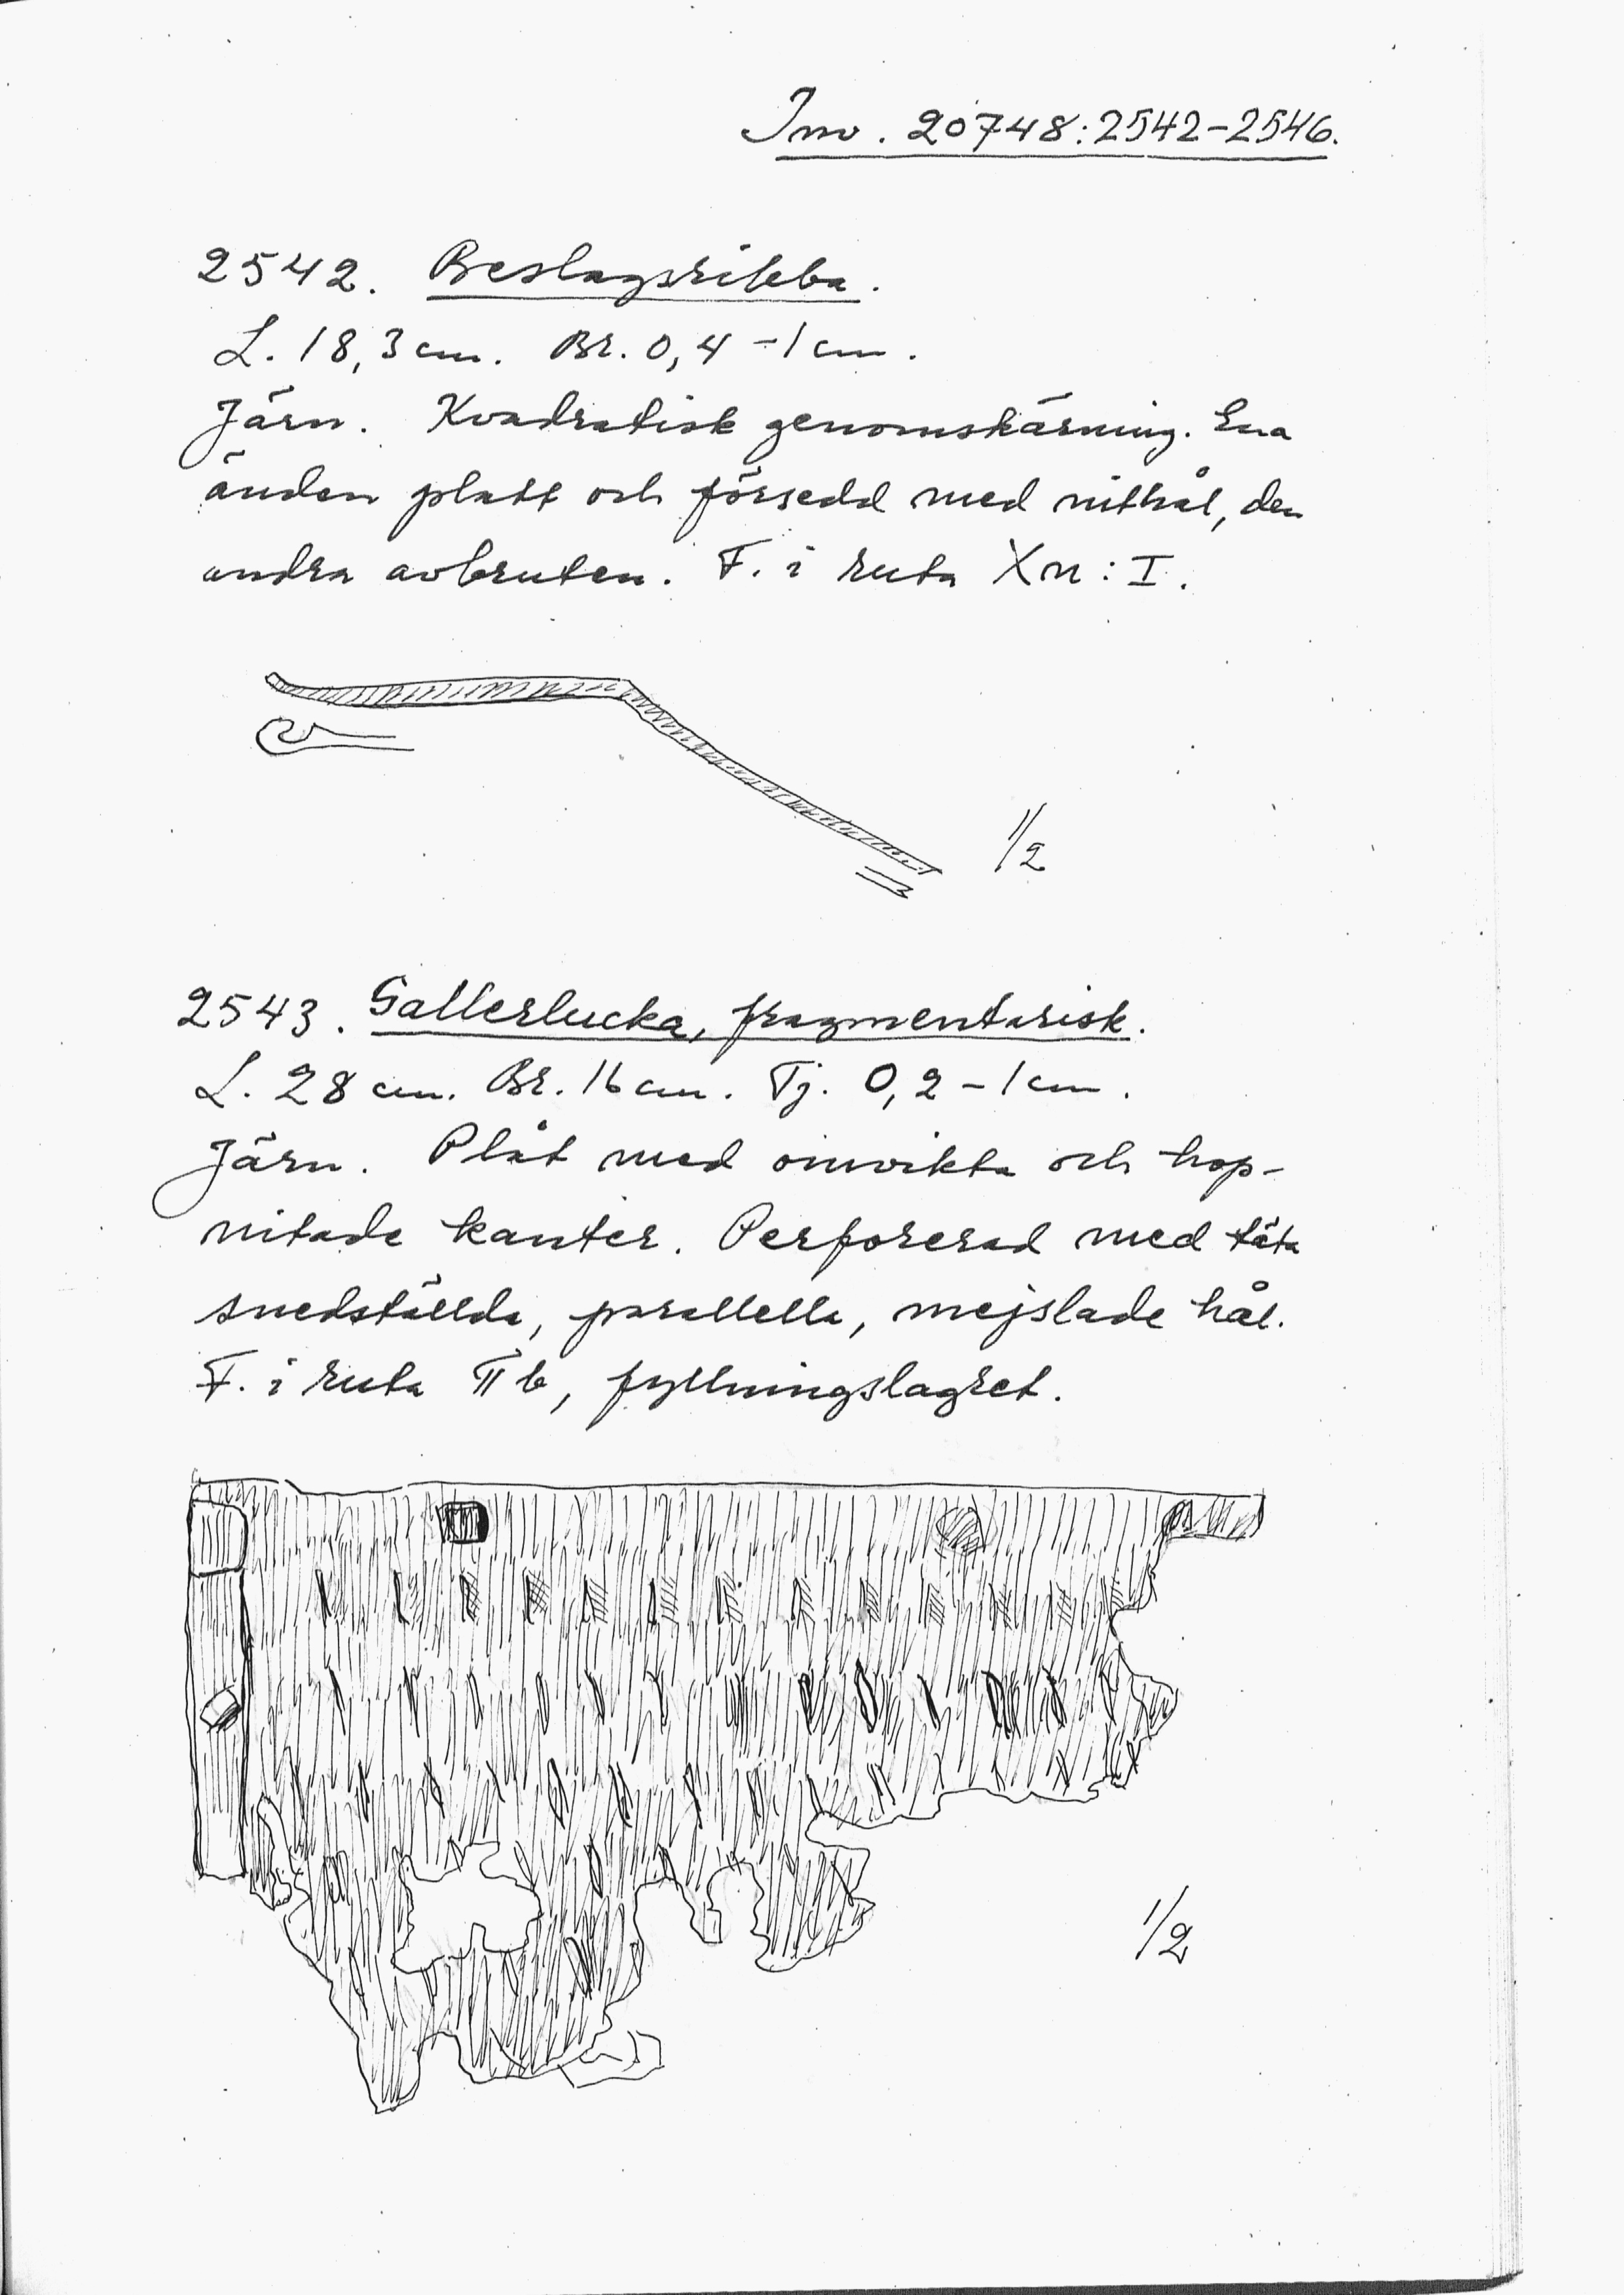 Inv. 20748:2542-2546.
2542. Beslagsribba.
L. 18,3 cm. Br. 0,4-1 cm.
Järn. Kvadratisk genomskärning. Ena
änden platt och försedd med nithål, den
andra avbruten. F. i ruta X n : I.
1/2
2543. Gallerlucka, fragmentarisk.
L. 28 cm. Br. 16 cm. Tj. 0,2-1 cm.
Järn. Plåt med omvikta och hop-
nitade kanter. Perforerad med täta
snedställda, parallella, mejslade hål.
F. i ruta II b, fyllningslagret.
1/2